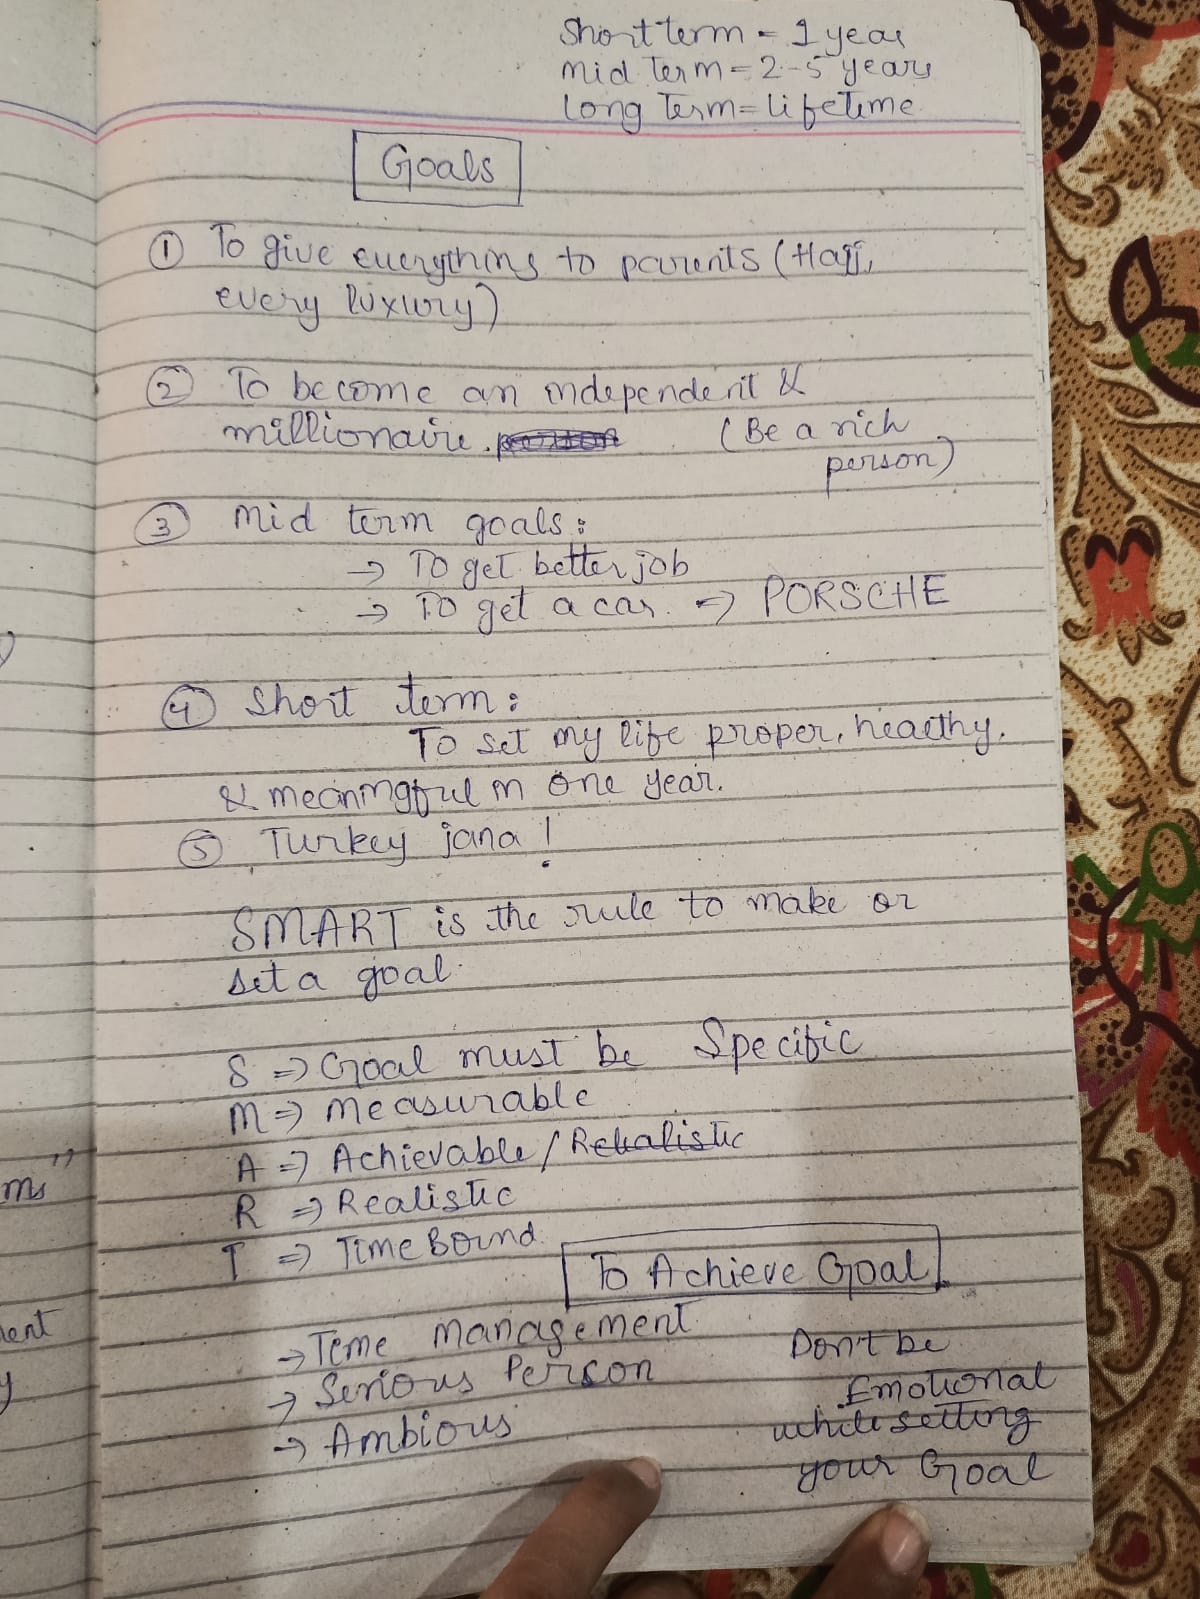 Short term = 1 year
Mid Term = 2-5 years
Long Term = Lifetime
Goals
① To give everything to parents (Hajj,
every luxury)
② To become an independent &
millionaire.
(Be a rich
person)
③ Mid term goals:
→ To get better job
→ To get a car. => PORSCHE
④ Short term:
To set my life proper, healthy,
& meaningful in one year.
⑤ Turkey jana !
SMART is the rule to make or
set a goal.
S => Goal must be Specific
M => Measurable
A => Achievable /
R => Realistic
T => Time Bound.
To Achieve Goal.
→ Time Management
→ Serious Person
→ Ambious
Don't be
Emotional
while setting
your Goal
ms"
ent
y